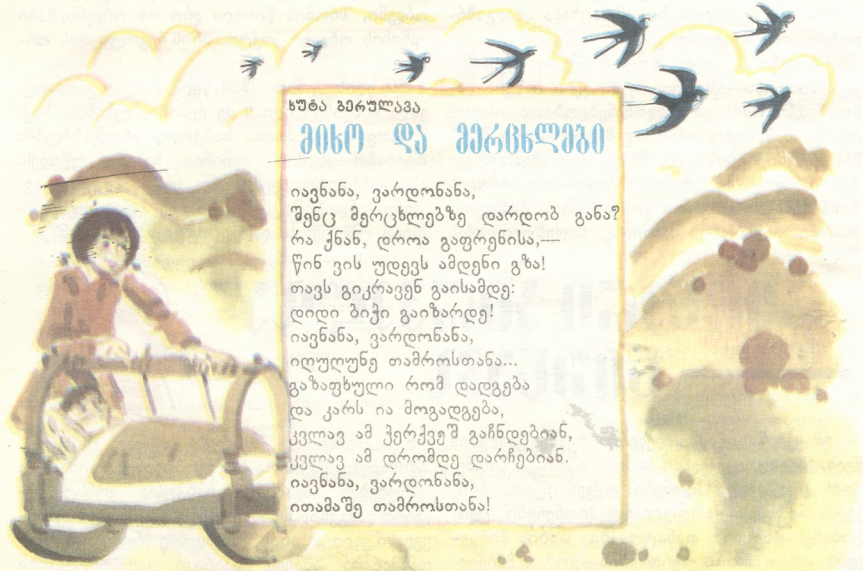 ხუტა ბერულავა
მიხო და მერცხლები
იავნანა, ვარდონანა,
შენც მერცხლებზე დარდობ განა?
რა ქნან, დროა გაფრენისა,—
წინ ვის უდევს ამდენი გზა!
თავს გიკრავენ გაისამდე:
დიდი ბიჭი გაიზარდე!
იავნანა, ვარდონანა,
იღუღუნე თამროსთანა...
გაზაფხული რომ დადგება
და კარს ია მოგადგება,
კვლავ ამ ჭერქვეშ გაჩნდებიან,
კვლავ ამ დრომდე დარჩებიან.
იავნანა, ვარდონანა,
ითამაშე თამროსთანა!